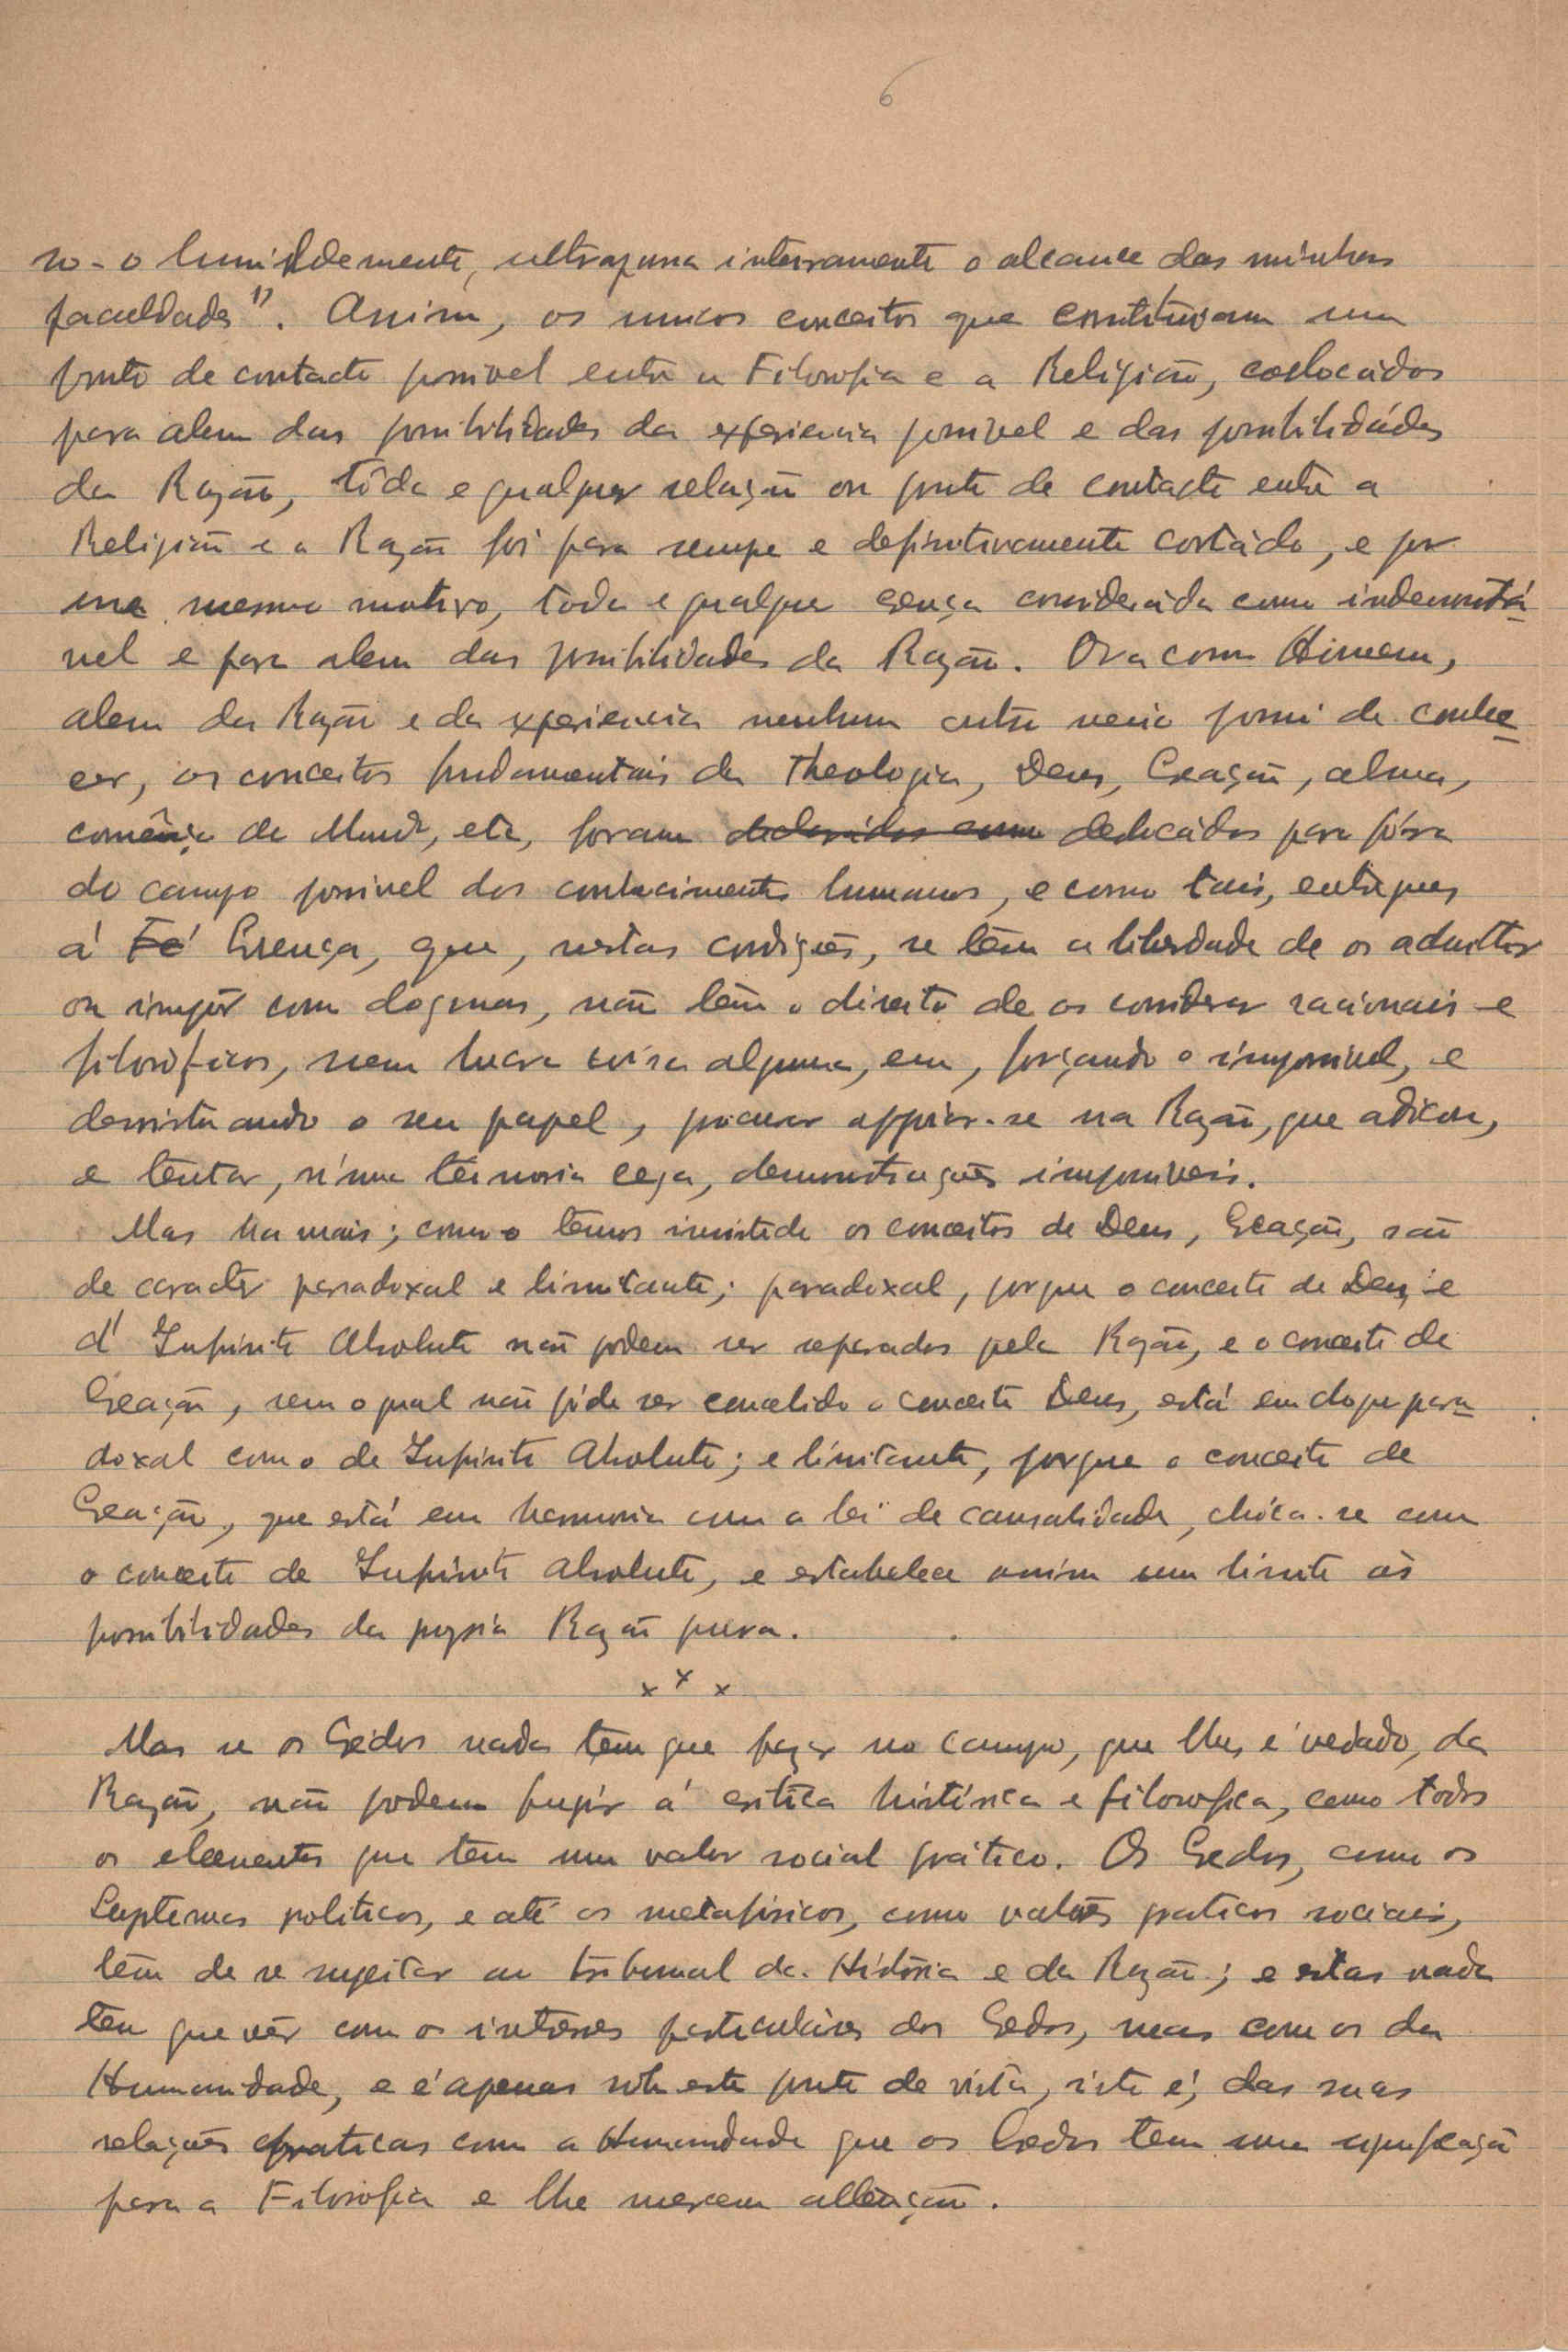 6
so-o humildemente, ultrapassa inteiramente o alcance das minhas
faculdades". Assim, os unicos conceitos que constituiam um
ponto de contacto possivel entre a Filosofia e a Religião, coslocádos
para alem das possibilidades da experiencia possivel e das possibilidádes
da Razão, tôda e qualquer relação ou ponto de contacto entre a
Religião e a Razão foi para sempre e definitivamente cortádo, e por
esse mesmo motivo, toda e qualquer crença consideráda como indemonstrá-
vel e para alem das possibilidades da Razão. Ora como Homem,
alem da Razão e da experiencia nenhum outro meio possui de conhe-
cer, os conceitos fundamentais da Theologia, Deus, Creação, alma,
comêço do Mundo, etc, foram declarádos como deslocádos para fóra
do campo possivel dos conhecimentos humanos, e como tais, entregues
á Fé Crença, que, nestas condições, se têm a liberdade de os admittir
ou impôr como dogmas, não têm o direito de os considerar racionais e
filosóficos, nem lucra coisa alguma, em, forçando o impossivel, e
desvirtuando o seu papel, procurar appoiar-se na Razão, que abdicou,
e tentar, n'uma teimosia cega, demonstrações impossiveis.
Mas ha mais; como temos insistido os conceitos de Deus, Creação, são
de caracter paradoxal e limitante; paradoxal, porque o conceito de Deus e
d' Infinito Absoluto não podem ser separados pela Razão, e o conceito de
Creação, sem o qual não póde ser concebido o conceito Deus, está em choque para-
doxal com o de Infinito Absoluto; e limitante, porque o conceito de
Creação, que está em harmonia com a lei de causalidade, chóca-se com
o conceito de Infinito absoluto, e estabelece assim um limite ás
possibilidades da propria Razão pura.
x x x
Mas se os Crédos nada tem que fazer no campo, que lhes é vedado, da
Razão, não podem fugir á critica histórica e filosofica, como todos
os elementos que tem um valor social prático. Os Credos, como os
Systemas politicos, e até os metafisicos, como valôres praticos sociais,
têm de se sujeitar ao tribunal da História e da Razão; e estas nada
tem que vêr com os interesses particuláres dos Credos, mas com os da
Humanidade, e é apenas sob este ponto de vista, isto é, das suas
relações praticas com a Humanidade que os Credos tem uma significação
para a Filosofia e lhe merecem attenção.